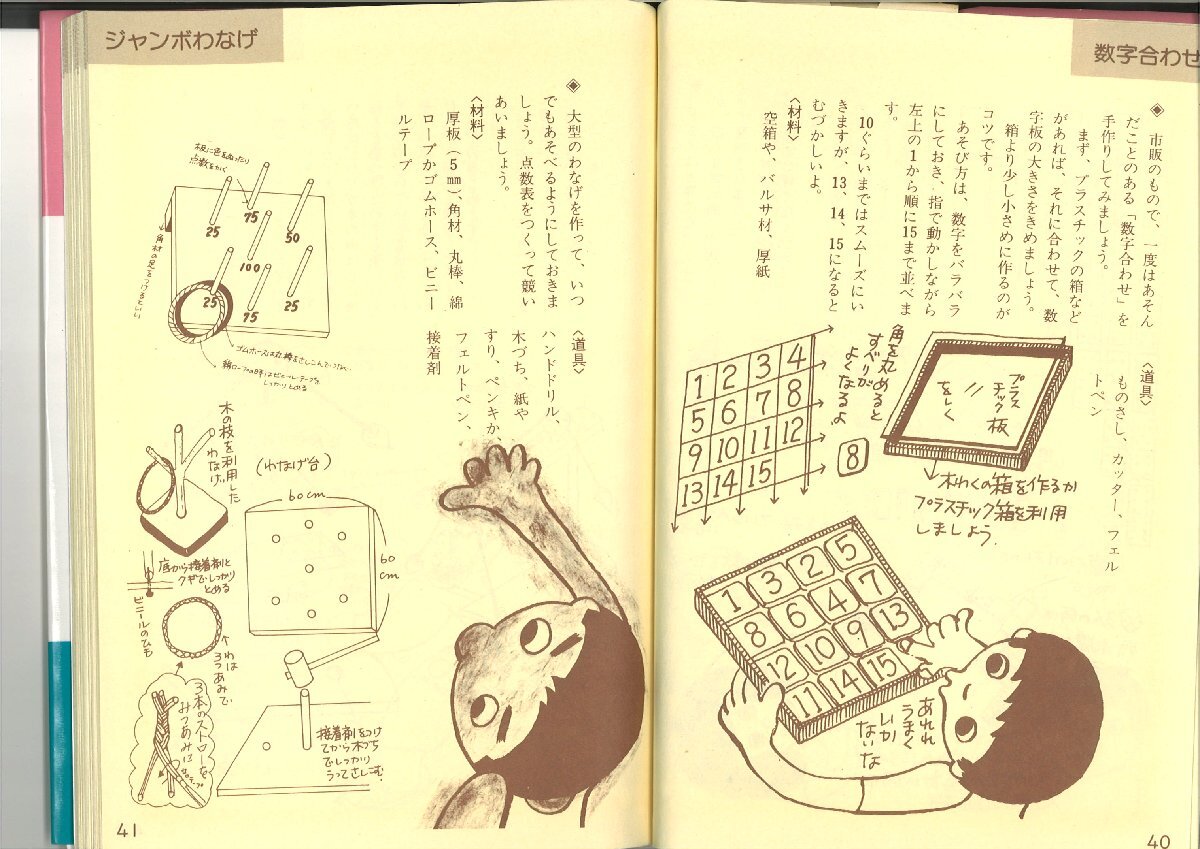 数字合わせ
◈ 市販のもので、一度はあそん
だことのある「数字合わせ」を
手作りしてみましょう。
まず、プラスチックの箱など
があれば、それに合わせて、数
字板の大きさをきめましょう。
箱より少し小さめに作るのが
コツです。
あそび方は、数字をバラバラ
にしておき、指で動かしながら
左上の1から順に15まで並べま
す。
10ぐらいまではスムーズにい
きますが、13、14、15になると
むづかしいよ。
〈材料〉
空箱や、バルサ材、厚紙
〈道具〉
ものさし、カッター、フェル
トペン
プラス
チック板
をしく
角を丸めると
すべりが
よくなるよ
8
1 2 3 4
5 6 7 8
9 10 11 12
13 14 15
木わくの箱を作るか
プラスチック箱を利用
しましょう.
1 3 2 5
8 6 4 7
12 10 9 13
11 14 15
あれれ
うまく
いか
ないな
40
ジャンボわなげ
◈ 大型のわなげを作って、いつ
でもあそべるようにしておきま
しょう。点数表をつくって競い
あいましょう。
〈材料〉
厚板(5㎜)、角材、丸棒、綿
ロープかゴムホース、ビニー
ルテープ
〈道具〉
ハンドドリル、
木づち、紙や
すり、ペンキか、
フェルトペン、
接着剤
板に色をぬったり
点数をかく
25
75
50
100
25
75
25
角材の足をつけるとよい
綿ロープの時はビニールテープで
しっかりとめる
木の枝を利用した
わなげ
(わなげ台)
60cm
60
cm
底から接着剤と
クギでしっかり
とめる
ビニールのひも
わは
3つあみで
3本のストローを
みつあみに
テープ
接着剤をつけ
てから木づち
でしっかり
うってさしこむ
41